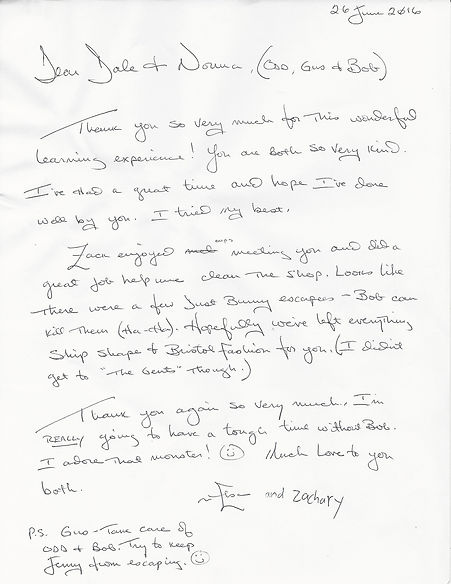 26 June 2016
Dear Dale & Norma, (ODD, Gus & Bob)
Thank you so very much for this wonderful
learning experience! You are both so very kind.
I've had a great time and hope I've done
well by you. I tried my best.
Zack enjoyed meeting you and did a
great job help me clean the shop. Looks like
there were a few Dust Bunny escapees - Bob can
kill them (Ha-Ha). Hopefully we've left everything
Ship Shape & Bristol fashion for you. (I didn't
get to "The Gents" though.)
Thank you again so very much. I'm
REALLY going to have a tough time without Bob.
I adore that monster! ☺ Much Love to you
both.
and Zachary
P.S. Gus - Take care of
ODD & Bob. Try to keep
Jenny from escaping. ☺